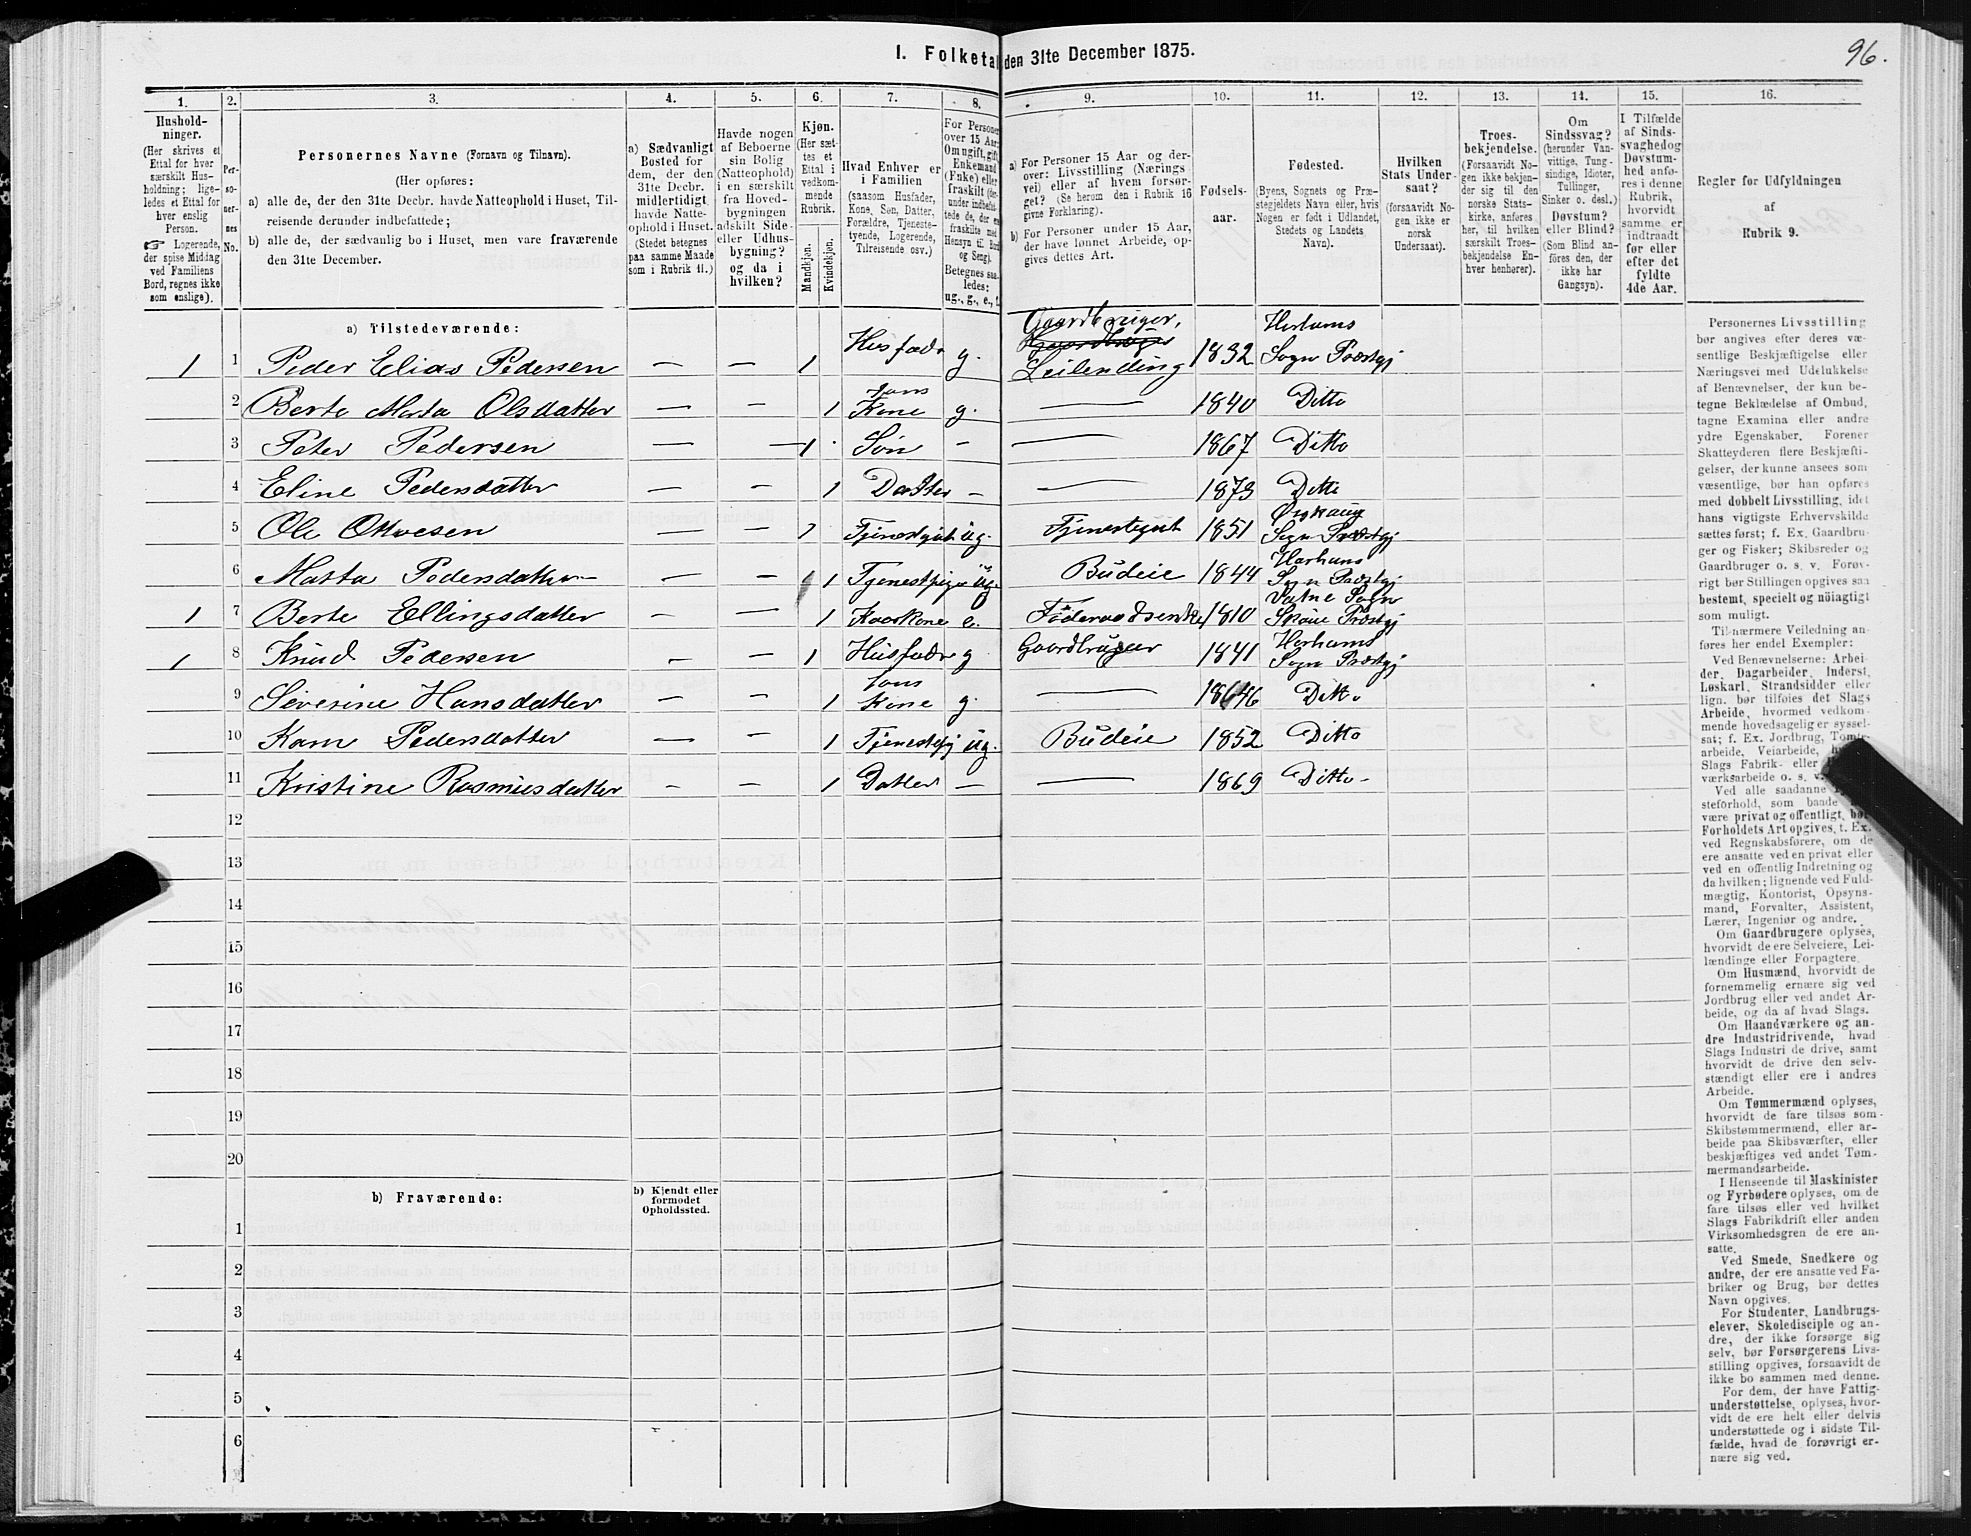 I. Folketal den 31te December 1875.
96.
1. 2. 3. 4. 5. 6. 7. 8. 9. 10. 11. 12. 13. 14. 15. 16.
Hushold-
ninger.
(Her skrives et
Ettal for hver
særskilt Hus-
holdning; lige-
ledes et Ettal for
hver enslig
Person.
☞ Logerende,
der spise Middag
ved Familiens
Bord, regnes ikke
som enslige).
Per-
so-
ner-
nes
No.
Personernes Navne (Fornavn og Tilnavn).
(Her opføres:
a) alle de, der den 31te Decbr. havde Natteophold i Huset, Til-
reisende derunder indbefattede;
b) alle de, der sædvanlig bo i Huset, men vare fraværende
den 31te December.
a) Sædvanligt
Bosted for
dem, der den
31te Decbr.
midlertidigt
havde Natte-
ophold i Huset.
(Stedet betegnes
paa samme Maade
som i Rubrik 11.)
Havde nogen
af Beboerne
sin Bolig
(Natteophold)
i en særskilt
fra Hoved-
bygningen
adskilt Side-
eller Udhus-
bygning?
og da i
hvilken?
Kjøn.
(Her sæt-
tes et
Ettal i
vedkom-
mende
Rubrik.
Mandkjøn.
Kvindekjøn.
Hvad Enhver er
i Familien
(saasom Husfader,
Kone, Søn, Datter,
Forældre, Tjeneste-
tyende, Logerende,
Tilreisende osv.)
For Personer
over 15 Aar:
Om ugift, gift,
Enkemand
(Enke) eller
fraskilt (der-
under indbefat-
tede de, der ere
fraskilte med
Hensyn til Bord
og Seng).
Betegnes saa-
ledes:
ug., g., e., f.
a) For Personer 15 Aar og der-
over: Livsstilling (Nærings
vei) eller af hvem forsør-
get? (Se herom den i Rubrik 16
givne Forklaring).
b) For Personer under 15 Aar,
der have lønnet Arbeide, op-
gives dettes Art.
Fødsels-
aar.
Fødested.
(Byens, Sognets og Præ-
stegjeldets Navn eller, hvis
Nogen er født i Udlandet,
Stedets og Landets
Navn).
Hvilken
Stats Under-
saat?
(forsaavidt No-
gen ikke er
norsk
Undersaat).
Troes-
bekjendelse.
(Forsaavidt No-
gen ikke bekjen-
der sig til den
norske Stats-
kirke, anføres
her, til hvilken
særskilt Troes-
bekjendelse En-
hver henhører).
Om
Sindssvag?
(herunder Van-
vittige, Tung-
sindige, Idioter,
Tullinger,
Sinker o. desl.)
Døvstum?
eller Blind?
(Som Blind an-
føres den, der
ikke har
Gangsyn).
I Tilfælde
af Sinds-
svaghed og
Døvstum-
hed anfø-
res i denne
Rubrik,
hvorvidt
samme er
indtraadt
før eller
efter det
fyldte
4de Aar.
Regler for Udfyldningen
af
Rubrik 9.
a) Tilstedeværende:
1 1 Peder Elias Pedersen — — 1 Husfader g. Gaardbruger, Leilending 1832 Harhams Sogn Præstgj
2 Berte Marta Olsdatter — — 1 hans Kone g. — 1840 Ditto
3 Peter Pedersen — — 1 Søn — — 1867 Ditto
4 Eline Pedersdatter — — 1 Datter — — 1873 Ditto
5 Ole Olsvesen — — 1 Tjenestgut ug. Tjenestgut 1851 Ørskoug Sogn Præstgj
6 Marta Pedersdatter — — 1 Tjenestpige ug. Budeie 1844 Harhams Sogn Præstgj
1 7 Berte Ellingsdatter — — 1 Kaarkone e. Føderaadsenke 1810 Vatne Sogn Skoue Præstgj
1 8 Knud Pedersen — — 1 Husfader g Gaardbruger 1841 Harhams Sogn Præstgj
9 Severine Hansdatter — — 1 hans Kone g. — 1846 Ditto
10 Karn Pedersdatter — — 1 Tjenestpij ug. Budeie 1852 Ditto
11 Kristine Rasmusdatter — — 1 Datter — — 1869 Ditto
12
13
14
15
16
17
18
19
20
b) Fraværende:
b) Kjendt eller
formodet
Opholdssted.
1
2
3
4
5
6
Personernes Livsstilling
bør angives efter deres væ-
sentlige Beskjæftigelse eller
Næringsvei med Udelukkelse
af Benævnelser, der kun be-
tegne Beklædelse af Ombud,
tagne Examina eller andre
ydre Egenskaber. Forener
Skatteyderen flere Beskjæfti-
gelser, der kunne ansees som
væsentlige, bør han opføres
med dobbelt Livsstilling, idet
hans vigtigste Erhvervskilde
sættes først; f. Ex. Gaardbru-
ger og Fisker; Skibsreder og
Gaardbruger o. s. v. Forøv-
rigt bør Stillingen opgives saa
bestemt, specielt og nöiagtigt
som muligt.
Til nærmere Veiledning an-
føres her endel Exempler:
Ved Benævnelserne: Arbei-
der, Dagarbeider, Inderst,
Løskarl, Strandsidder eller
lign. bør tilføies det Slags
Arbeide, hvormed vedkom-
mende hovedsagelig er syssel-
sat; f. Ex. Jordbrug, Tomte-
arbeide, Veiarbeide,
Slags Fabrik- eller
værksarbeide o. s. v.
Ved alle saadanne
steforhold, som baade
være privat og offentligt, bør
Forholdets Art opgives, t. Ex.
ved Regnskabsførere, om de
ere ansatte ved en privat eller
ved en offentlig Indretning og
da hvilken; lignende ved Fuld-
mægtig, Kontorist, Opsyns-
mand, Forvalter, Assistent,
Lærer, Ingeniør og andre.
Om Gaardbrugere oplyses,
hvorvidt de ere Selveiere, Lei-
lændinge eller Forpagtere.
Om Husmænd, hvorvidt de
fornemmelig ernære sig ved
Jordbrug eller ved andet Ar-
beide, og da af hvad Slags.
Om Haandværkere og an-
dre Industridrivende, hvad
Slags Industri de drive, samt
hvorvidt de drive den selv-
stændigt eller ere i andres
Arbeide.
Om Tømmermænd oplyses,
hvorvidt de fare tilsøs som
Skibstømmermænd, eller ar-
beide paa Skibsværfter, eller
beskjæftiges ved andet Tøm-
mermandsarbeide.
I Henseende til Maskinister
og Fyrbødere oplyses, om de
fare tilsøs eller ved hvilket
Slags Fabrikdrift eller anden
Virksomhedsgren de ere an-
satte.
Ved Smede, Snedkere og
andre, der ere ansatte ved Fa-
briker og Brug, bør dettes
Navn opgives.
For Studenter, Landbrugs-
elever, Skoledisciple og an-
dre, der ikke forsørge sig
selv, bør Forsørgerens Livs-
stilling opgives, forsaavidt de
ikke bo sammen med denne.
For dem, der have Fattig-
understøttelse, oplyses, hvor-
vidt de ere helt eller delvis
understøttede og i sidste Til-
fælde, hvad de forøvrigt er-
nære sig ved.